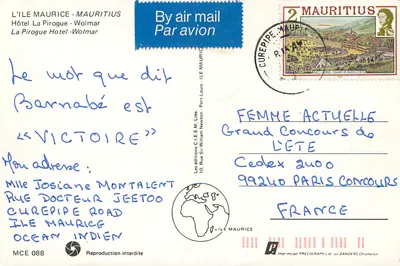 L'ILE MAURICE - MAURITIUS
Hôtel La Pirogue - Wolmar
La Pirogue Hotel - Wolmar
By air mail
Par avion
2
MAURITIUS
CUREPIPE MAURITIUS
Le mot que dit
Barnabé est
<<VICTOIRE>>
Mon adresse:
Mlle Josiane MONTALENT
RUE DOCTEUR JEETOO
CUREPIPE ROAD
ILE MAURICE
OCEAN INDIEN
MCE 088
Reproduction interdite
Les éditions C.I.E.M. Ltée
Sir William Newton - Port-Louis - ILE MAURICE
ILE MAURICE
FEMME ACTUELLE
Grand Concours de
L'ÉTÉ
Cedex 2400
99240 PARIS CONCOURS
FRANCE